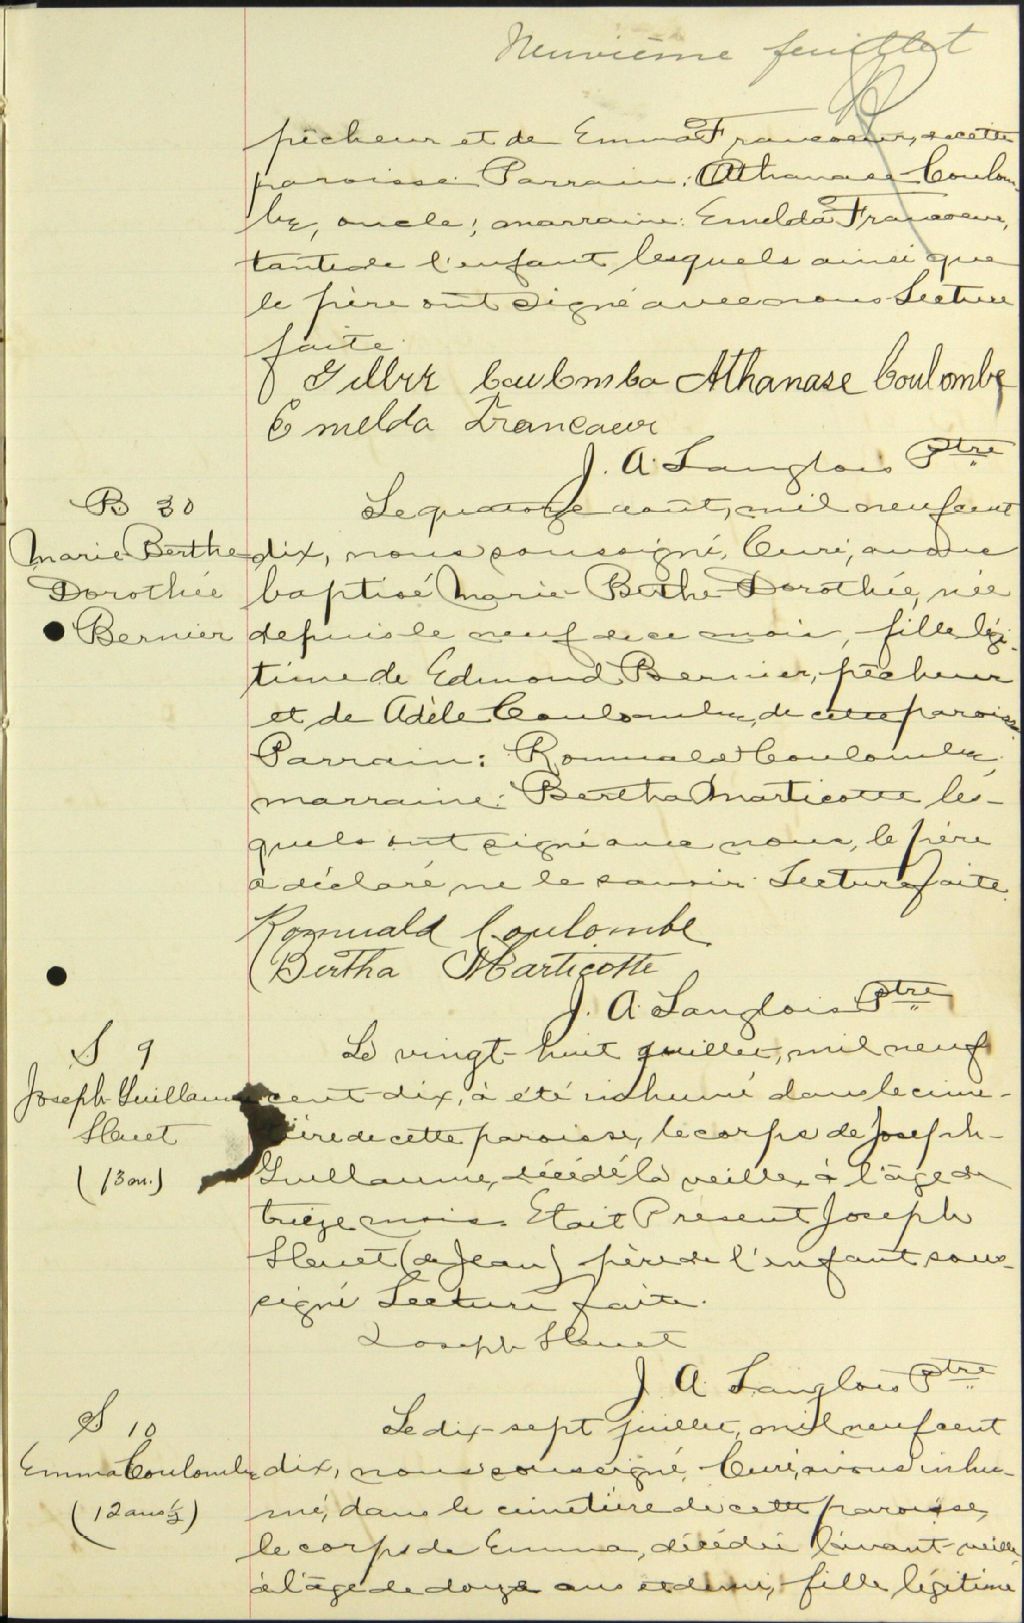 Neuvième feuillet
pêcheur et de Emma Francoeur, de cette
paroisse. Parrain: Athanase Coulom-
be, oncle; marraine: Emelda Francoeur,
tante de l'enfant lesquels ainsi que
le père ont signé avec nous Lecture
faite.
Coulombe Athanase Coulombe
Emelda Francoeur
J. A. Langlois Ptre
B 30
Marie Berthe
Dorothée
Bernier
Le quatorze août, mil neuf cent
dix, nous soussigné, Curé, avons
baptisé Marie-Berthe-Dorothée, née
depuis le neuf de ce mois, fille légi-
time de Edmond Bernier, pêcheur
et de Adèle Coulombe, de cette paroisse
Parrain: Romuald Coulombe,
marraine: Bertha Marticotte les-
quels ont signé avec nous, le père
a déclaré ne le savoir. Lecture faite.
Romuald Coulombe
Bertha Marticotte
J. A. Langlois Ptre
S 9
Joseph Guillaume
(13 m.)
Le vingt-huit juillet, mil neuf
cent-dix, à été inhumé dans le cime-
tière de cette paroisse, le corps de Joseph-
Guillaume, décédé la veille, à l'âge de
treize mois. Etait Present Joseph
(de Jean) père de l'enfant sous-
signé Lecture faite.
Joseph
J. A. Langlois Ptre
S 10
Emma Coulombe
(12 ans ½)
Le dix-sept juillet, mil neuf cent
dix, nous soussigné, Curé, avons inhu-
mé, dans le cimetière de cette paroisse,
le corps de Emma, décédée l'avant-veille
à l'âge de douze ans et demi, fille légitime